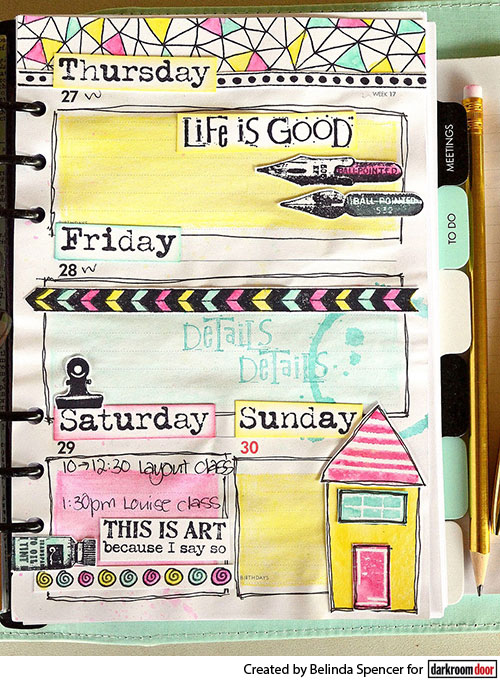 Thursday
27
WEEK 17
LIFE IS GOOD
BALLPOINTED
BALL-POINTED
532
BIRTHDAYS
Friday
28
MEETINGS
TO DO
Details
Details
Saturday
Sunday
29
30
10→12:30 layout class
1:30pm Louise class
THIS IS ART
because I say so
BIRTHDAYS
Created by Belinda Spencer for darkroom door